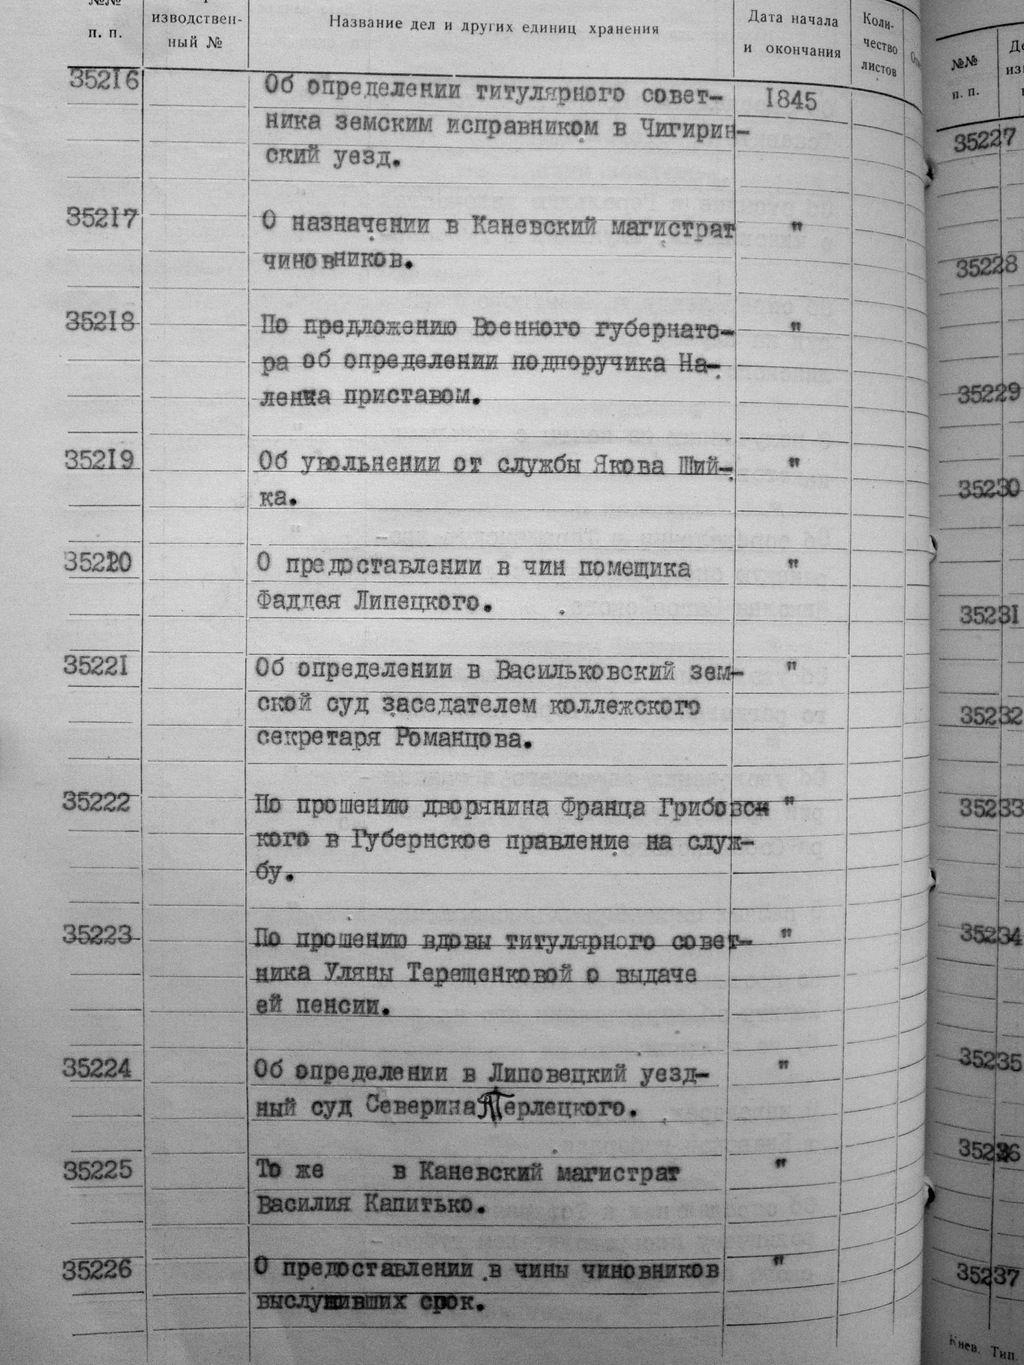 №№
п. п.
изводствен-
ный №
Название дел и других единиц хранения
Дата начала
и окончания
Коли-
чество
листов
35216
Об определении титулярного совет-
ника земским исправником в Чигирин-
ский уезд.
1845
35217
О назначении в Каневский магистрат
чиновников.
"
35218
По предложению Военного губернато-
ра об определении подпоручика На-
ленча приставом.
"
35219
Об увольнении от службы Якова Ший-
ка.
"
35220
О предоставлении в чин помещика
Фаддея Липецкого.
"
35221
Об определении в Васильковский зем-
ской суд заседателем коллежского
секретаря Романцова.
"
35222
По прошению дворянина Франца Грибовск
кого в Губернское правление на служ-
бу.
"
35223
По прошению вдовы титулярного совет-
ника Уляны Терещенковой о выдаче
ей пенсии.
"
35224
Об определении в Липовецкий уезд-
ный суд Северина Терлецкого.
"
35225
То же в Каневский магистрат
Василия Капитько.
"
35226
О предоставлении в чины чиновников
выслуживших срок.
"
№№
п. п.
35227
35228
35229
35230
35231
35232
35233
35234
35235
35236
35237
Киев. Тип.